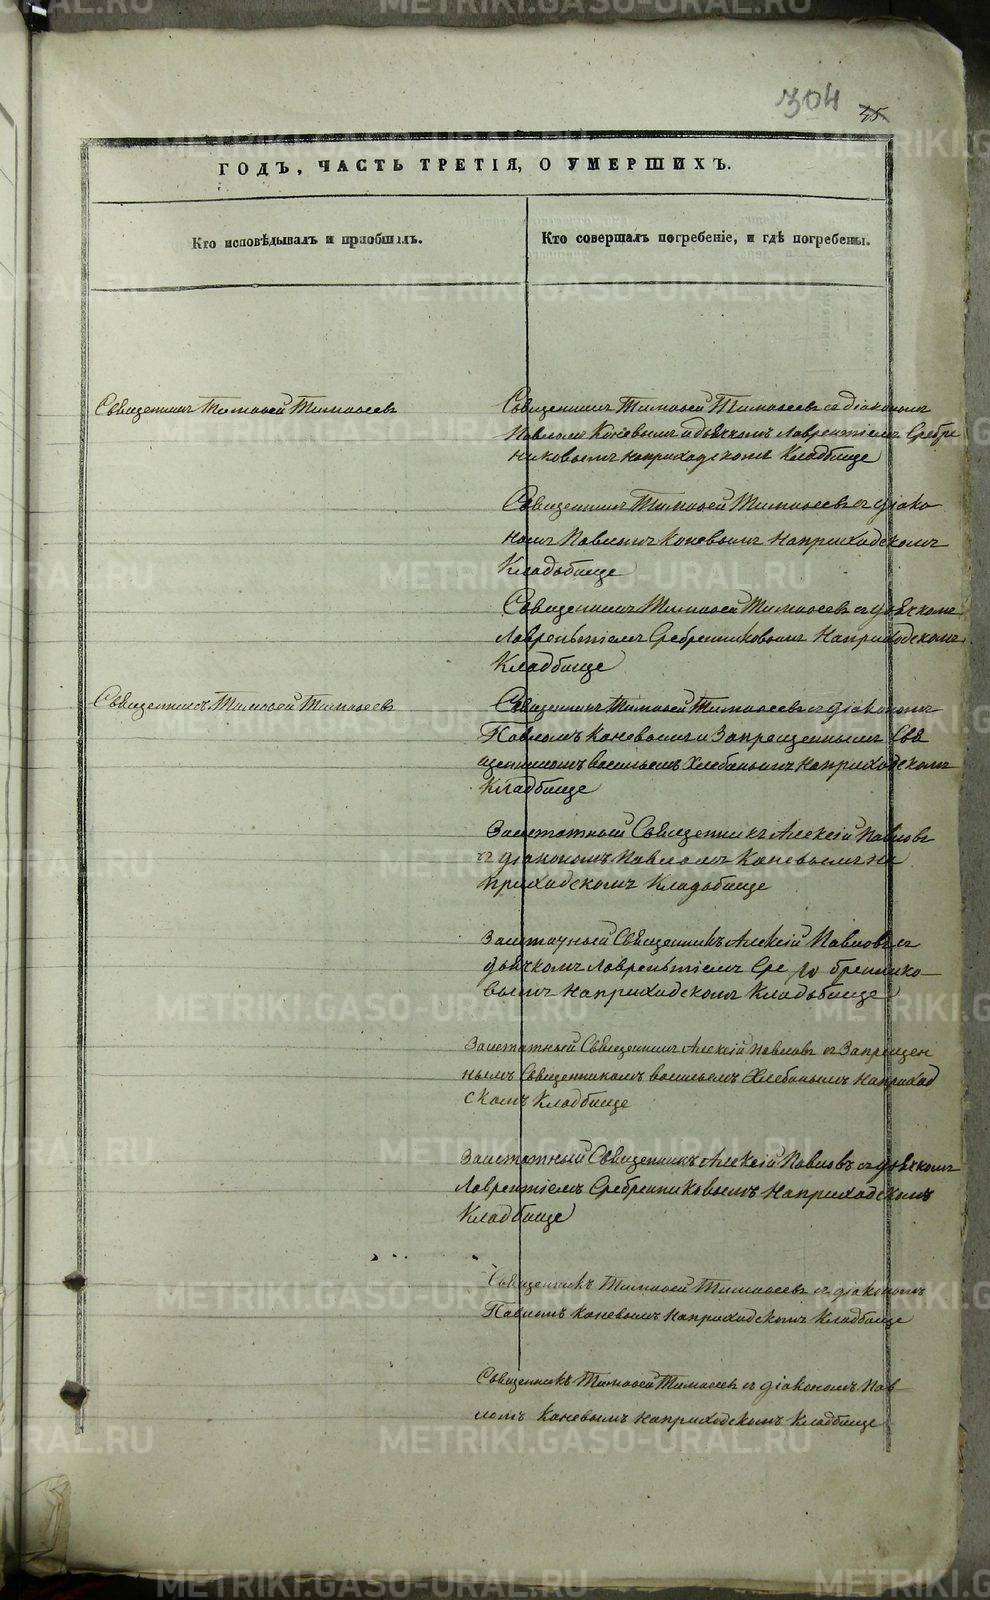 304 45
ГОДЪ, ЧАСТЬ ТРЕТІЯ, О УМЕРШИХЪ.
Кто исповѣдывалъ и пріобщалъ.
Кто совершалъ погребеніе, и гдѣ погребены.
Священникъ Тимофей Тимофеевъ
Священникъ Тимофей Тимофеевъ съ діакономъ
Павломъ Каневымъ и дьячкомъ Лаврентіемъ Сребре
никовымъ на приходскомъ Кладбище
Священникъ Тимофей Тимофеевъ съ діако
номъ Павломъ Каневымъ на приходскомъ
Кладбище
Священникъ Тимофей Тимофеевъ съ дьячкомъ
Лаврентіемъ Сребренниковымъ на приходскомъ
Кладбище
Священникъ Тимофей Тимофеевъ
Священникъ Тимофей Тимофеевъ съ діакономъ
Павломъ Каневымъ и Запрещеннымъ Свя
щенникомъ Васильемъ Хлебинымъ на приходскомъ
Кладбище
Заштатный Священникъ Алексій Павловъ
съ діакономъ Павломъ Каневымъ на
приходскомъ Кладбище
Заштатный Священникъ Алексій Павловъ съ
дьячкомъ Лаврентіемъ Сре бренико
вымъ на приходскомъ Кладбище
Заштатный Священникъ Алексій Павловъ съ Запрещен
нымъ Священникомъ Васильемъ Хлебинымъ на приход
скомъ Кладбище
Заштатный Священникъ Алексій Павловъ съ дьячкомъ
Лаврентіемъ Сребренниковымъ на приходскомъ
Кладбище
Священникъ Тимофей Тимофеевъ съ діакономъ
Павломъ Каневымъ на приходскомъ Кладбище
Священникъ Тимофей Тимофеевъ съ діакономъ Пав
ломъ Каневымъ на приходскомъ Кладбище
METRIKI.GASO-URAL.RU